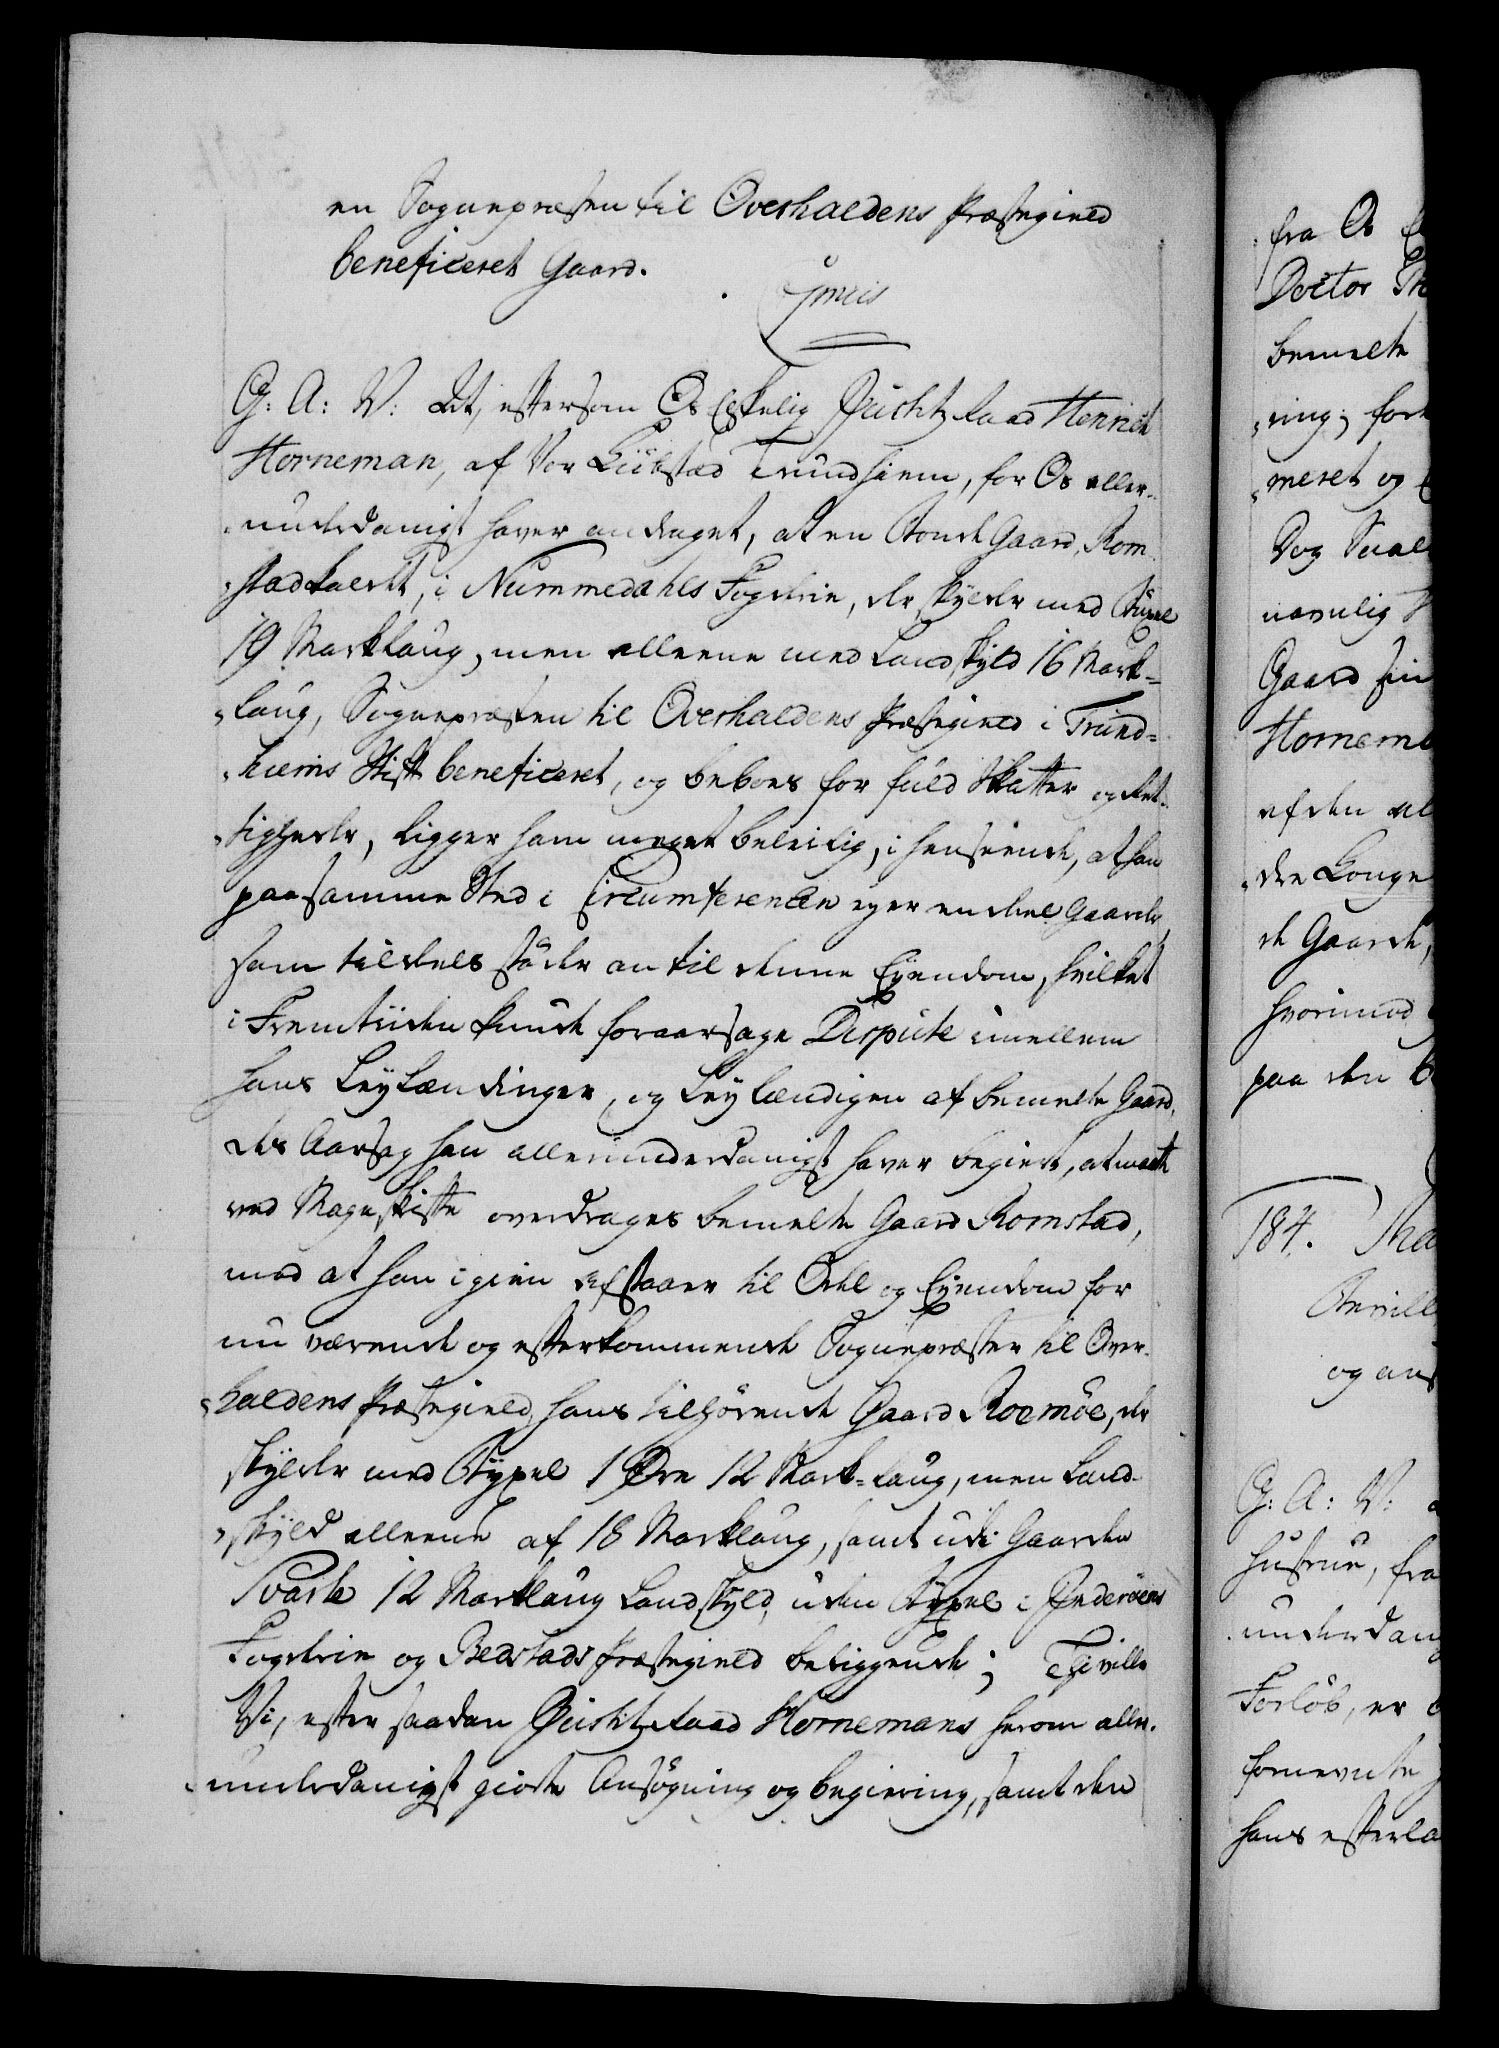 en Sognepræsten til Overhaldens Præstegield
beneficeret Gaard.
G: A: V: Vit, eftersom Os Elskelig Justitz Raad Henrich
Horneman, af Vor Kiøbstad Trundhiem, for Os aller-
underdanigst haver andraget, at en Bonde Gaard, Rom
stad kaldet, i Nummedahls Fogderie, der skylder med Büxel
19 Marklaug, men alleene med Landskyld 16 Mark-
laug, Sognepræsten til Overhaldens Præstegield i Trund-
hiems Stift beneficeret, og beboes for fuld Skatter og Ret-
tigheder, ligger ham meget beleilig, i henseende, at han
paa samme Sted i Circumferencen eyer en deel Gaarde,
som tildeels støder an til denne Eyendom, hvilket
i Fremtiiden kunde foraarsage Dispute imellem
hans Leylændinger, og Leylændigen af bemelte Gaard,
des Aarsag han allerunderdanigst haver begiert, at maatte
ved Mageskifte overdrages bemelte Gaard Romstad,
mod at han igien afstaaer til Odel og Eyendom for
nu værende og efterkommende Sognepræster til Over-
haldens Præstegield, hans tilhørende Gaard Roemöe, der
skylder med Byxel 1 Øre 12 Mark-laug, men Land-
skyld alleene af 18 Marklaug, samt udi Gaarden
Tvaste 12 Marklaug Landskyld, uden Byxel i Inderöens
Fogderie og Bedstads Præstegield beliggende; Thi ville
Vi, efter saadan Justitz Raad Hornemans herom aller-
underdanigst giorte Ansøgning og begiering, samt den
fra Os
Doctor
bemelte
ring, for
meret og
Dog Skal
navnlig
Gaard sin
Hornema
af den al
den Longe
de Gaarde,
hvorimod
paa den
184.
og an
G: A: V:
Hustrue, fra
underdan
Forløb, er
fornevnte
hans efterla